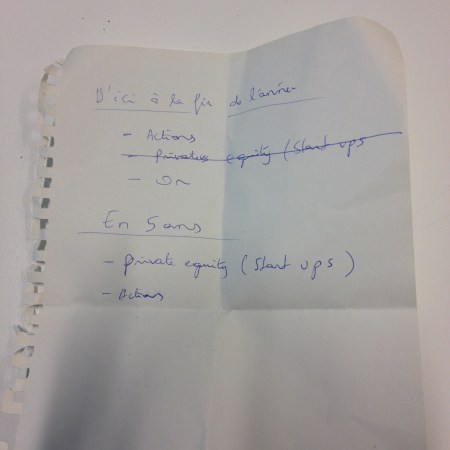 D'ici à la fin de l'année
- Actions
- Private equity (Start ups
- Or
En 5 ans
- private equity (Start ups)
- Actions